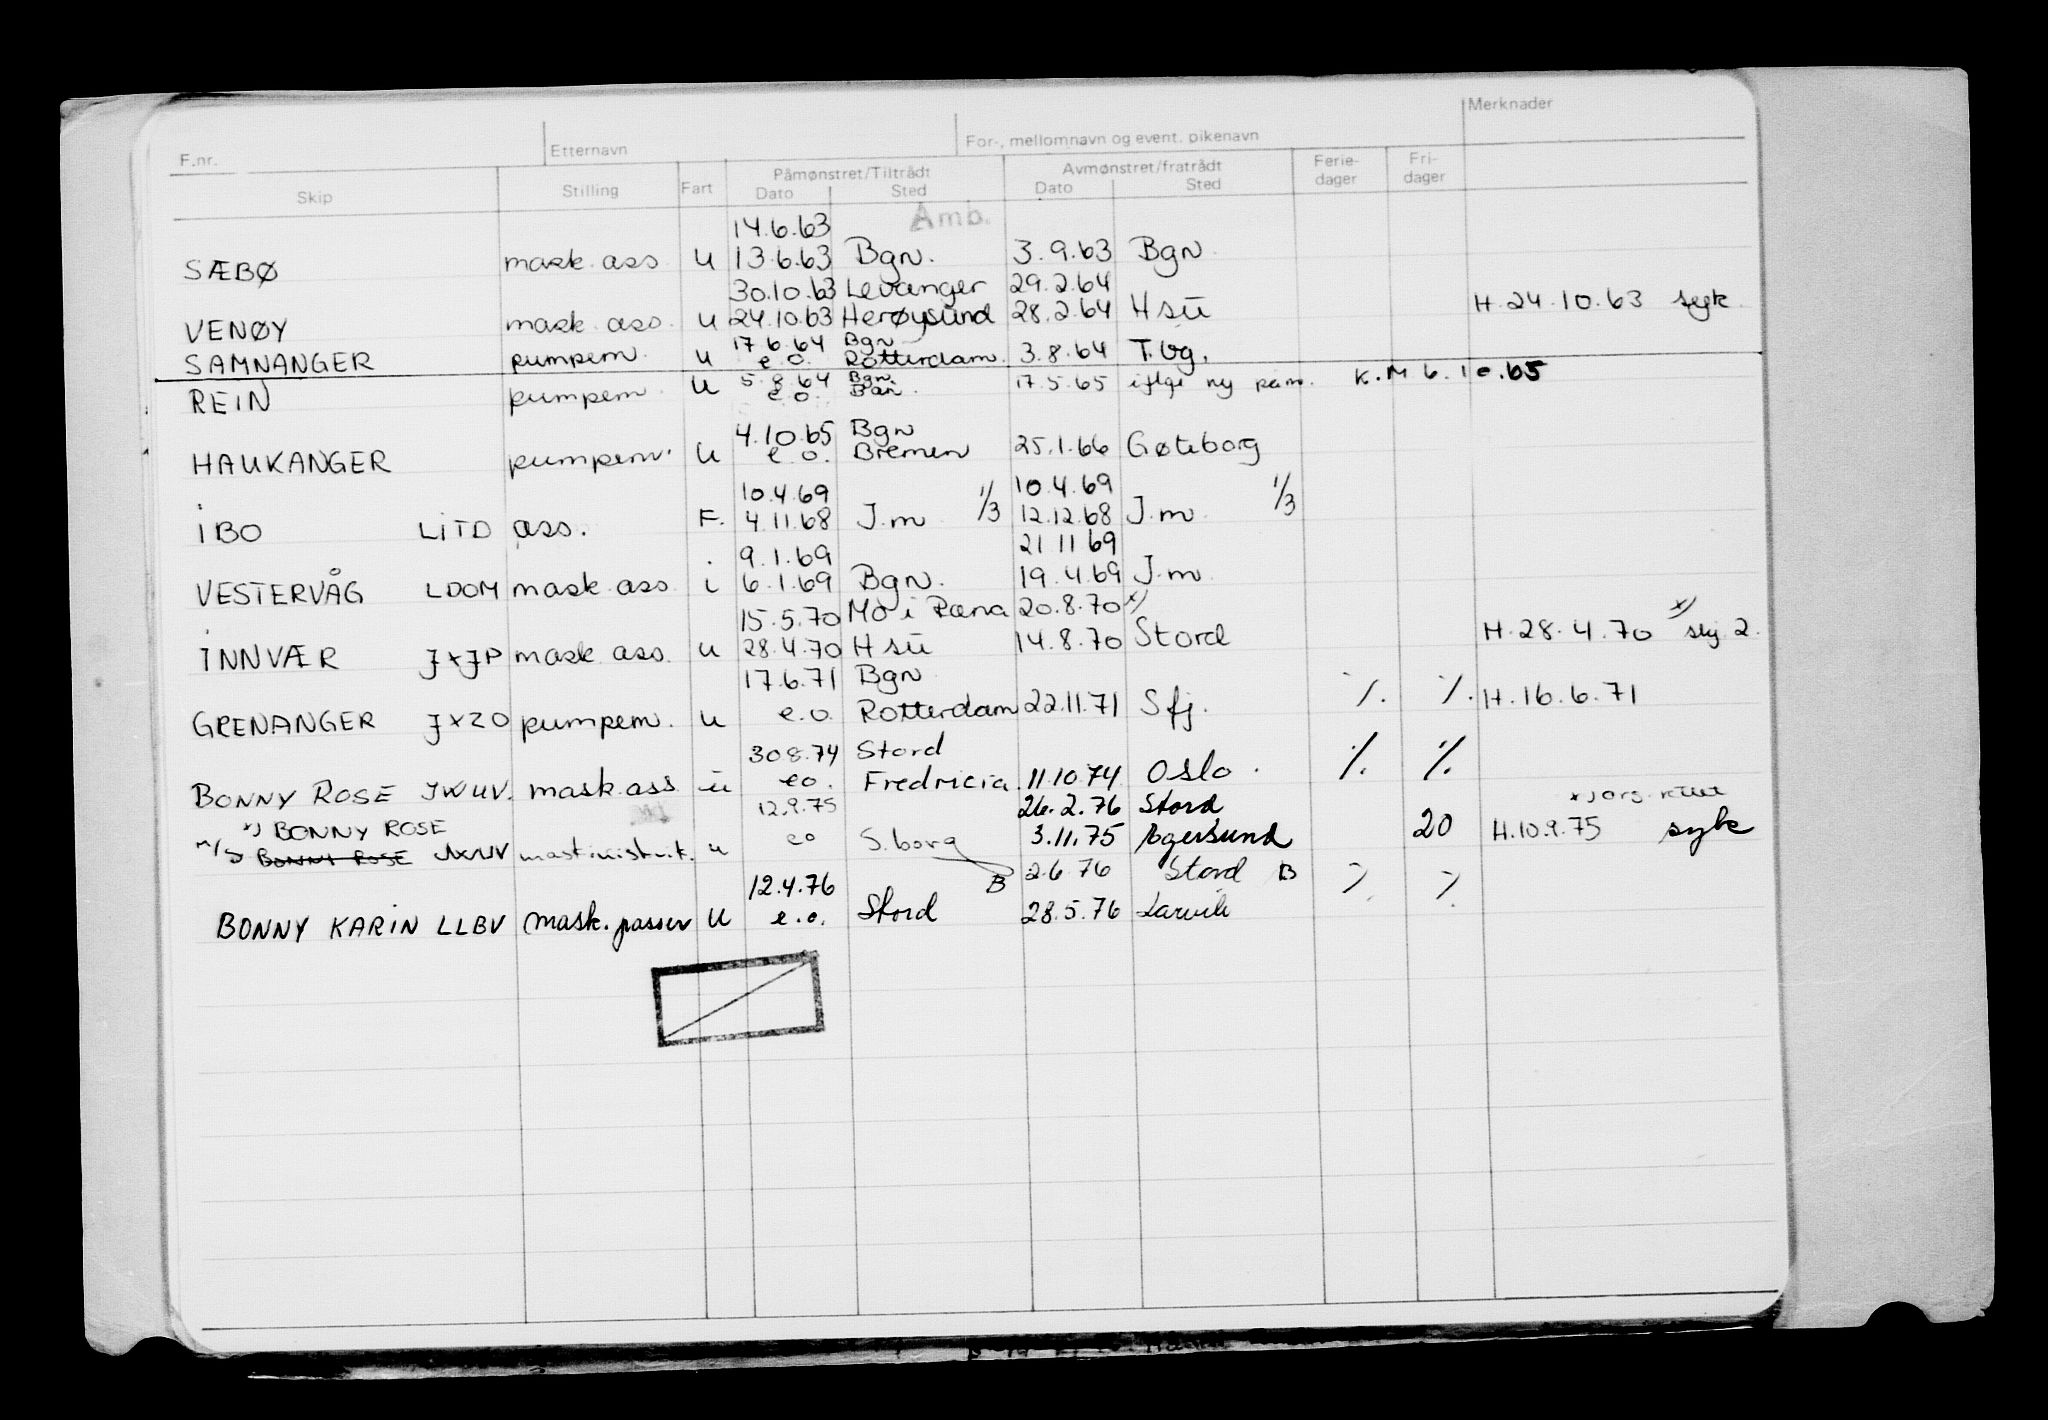 Merknader
F.nr. Etternavn For-, mellomnavn og event. pikenavn
Skip Stilling Fart Påmønstret/Tiltrådt Dato Sted Avmønstret/fratrådt Dato Sted Ferie-dager Fri-dager
14.6.63 Amb.
SÆBØ mask. ass u 13.6.63 Bgn. 3.9.63 Bgn
30.10.63 Levanger 29.2.64
VENØY mask. ass. u 24.10.63 Herøysund 28.2.64 Hsu H.24.10.63 syk
17.6.64 Bgn
SAMNANGER pumpem. u e.o. Rotterdam 3.8.64 T.bg.
5.8.64 Bgn.
REIN pumpem. u e.o. 17.5.65 iflge ny påm. K.M 6.10.65
4.10.65 Bgn
HAUKANGER pumpem. u e.o. Bremen 25.1.66 Gøteborg
10.4.69 10.4.69
IBO LITD ass. F. 4.11.68 J.m 1/3 12.12.68 J.m. 1/3
9.1.69 21 11 69
VESTERVÅG LDOM mask. ass i 6.1.69 Bgn. 19.4.69 J.m
15.5.70 Mo i Rana 20.8.70 x)
INNVÆR JXJP mask. ass. u 28.4.70 Hsu 14.8.70 Stord H.28.4.70 x) stg. 2.
17.6.71 Bgn
GRENANGER JXZO pumpem. u e.o. Rotterdam 22.11.71 Sfj. ./. ./. H.16.6.71
30.8.74 Stord
BONNY ROSE JWUV. mask.ass u eo. Fredricia 11.10.74 Oslo. ./. ./.
12.9.75 26.2.76 Stord
x) BONNY ROSE x) org. rettet
m/s BONNY ROSE JWUV u eo S.borg 3.11.75 Egersund 20 H.10.9.75 syk
12.4.76 B 2.6.76 Stord B ./. ./.
BONNY KARIN LLBV mask. passer u e.o. Stord 28.5.76 Larvik